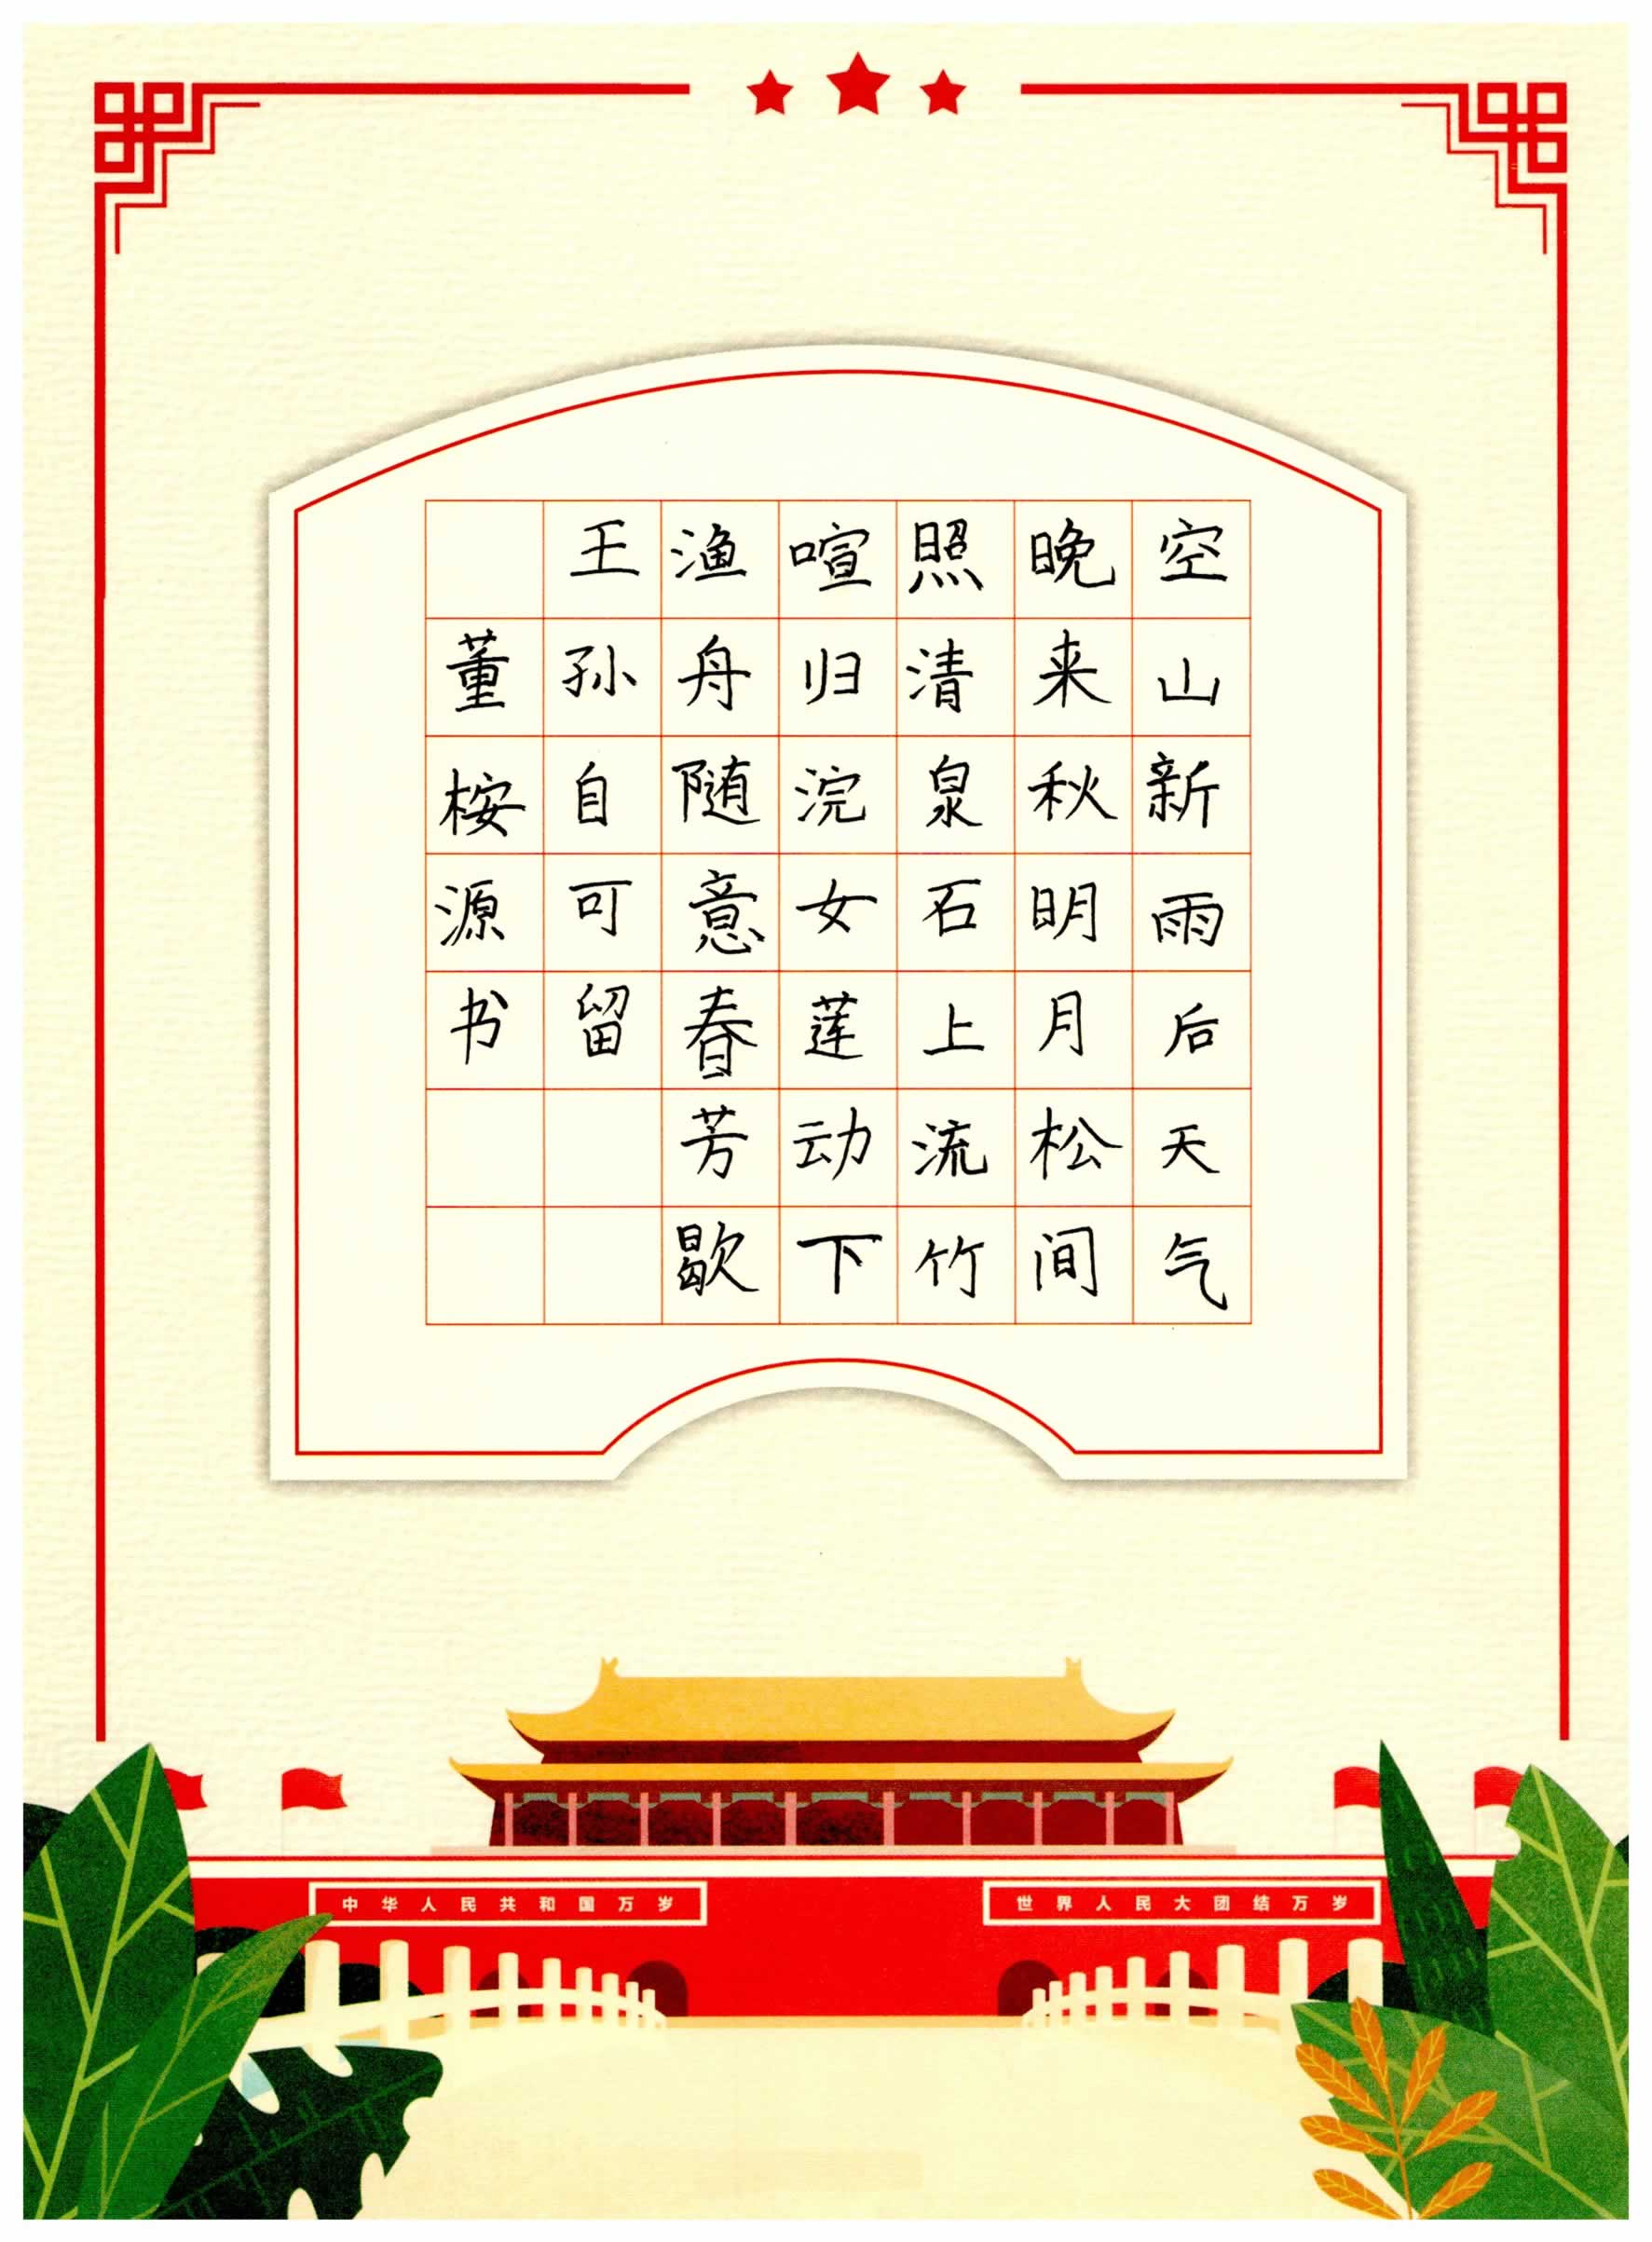 空山新雨后天气
晚来秋明月松间
照清泉石上流竹
喧归浣女莲动下
渔舟随意春芳歇
王孙自可留
董桉源书
中华人民共和国万岁
世界人民大团结万岁